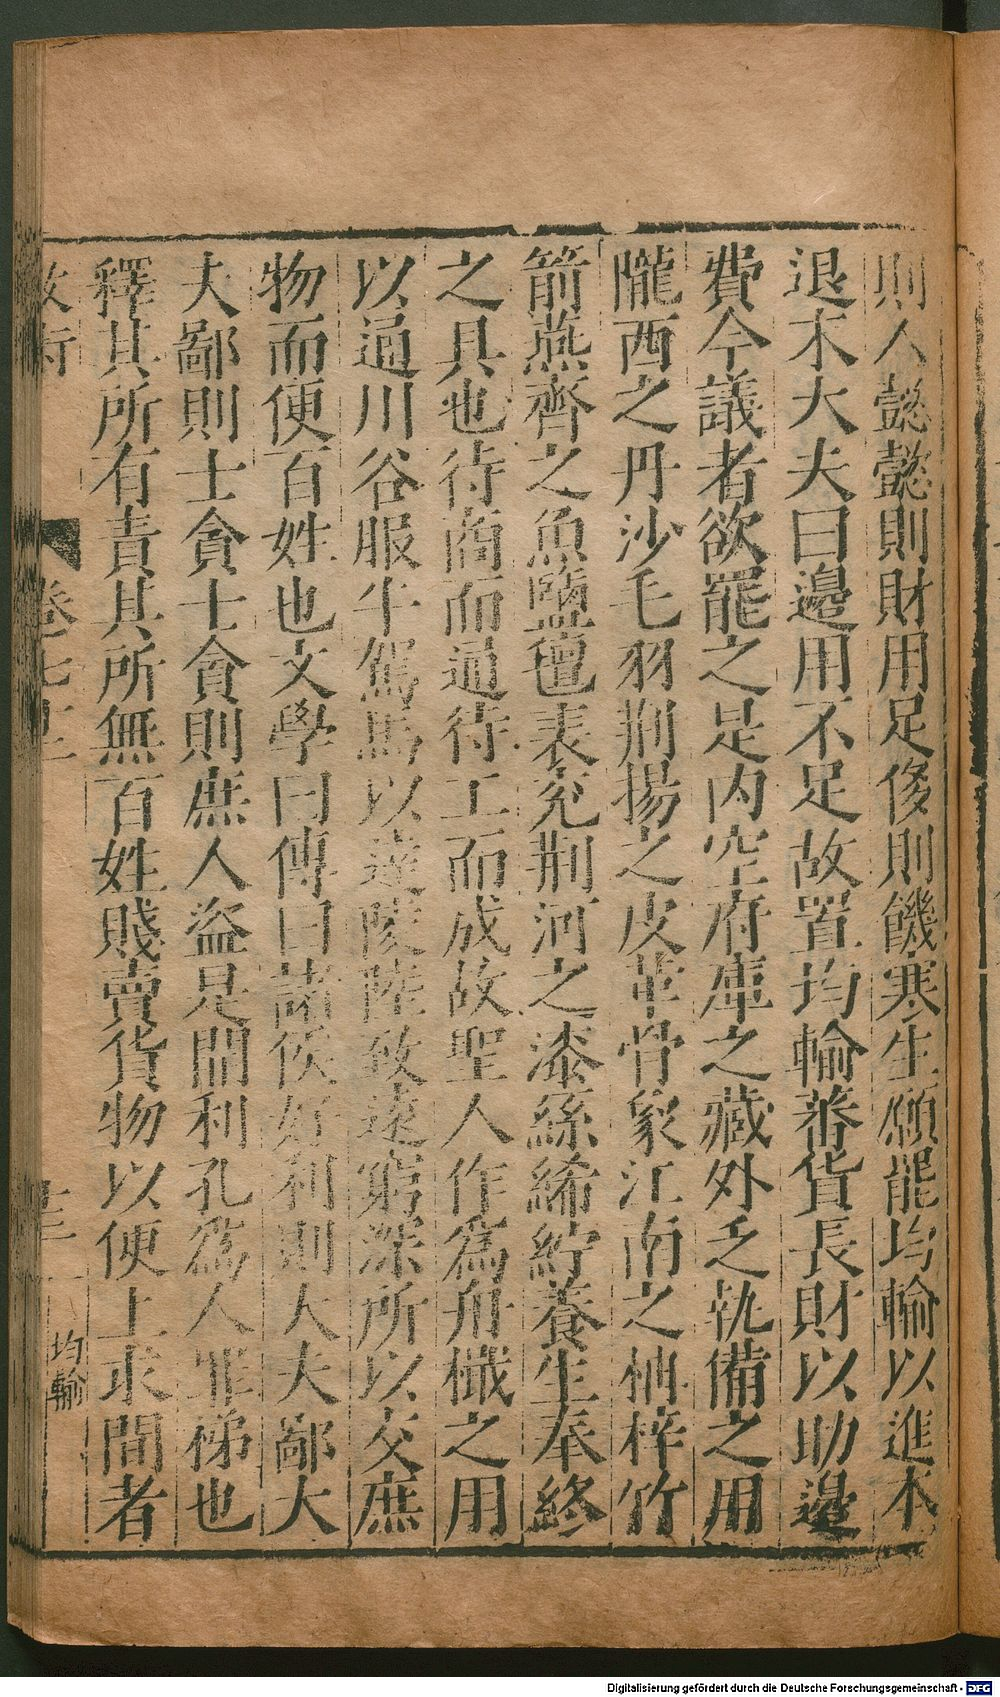 則人懿懿則財用足侈則饑寒生願罷均輸以進本
退末大夫曰邊用不足故置均輸蕃貨長財以助邊
費今議者欲罷之是内空府庫之藏外乏執備之用
隴西之丹沙毛羽荆揚之皮革骨象江南之柟梓竹
箭燕齊之魚鹽氊裘兖荆河之漆絲絺紵養生奉終
之具也待商而通待工而成故聖人作爲舟檝之用
以通川谷服牛駕馬以達陵陸致遠窮深所以交庶
物而便百姓也文學曰傳曰諸侯好利則大夫鄙大
夫鄙則士貪士貪則庶人盜是開利孔爲人罪梯也
釋其所有責其所無百姓賤賣貨物以便上求間者
卷七上
均輸
Digitalisierung gefördert durch die Deutsche Forschungsgemeinschaft - DFG